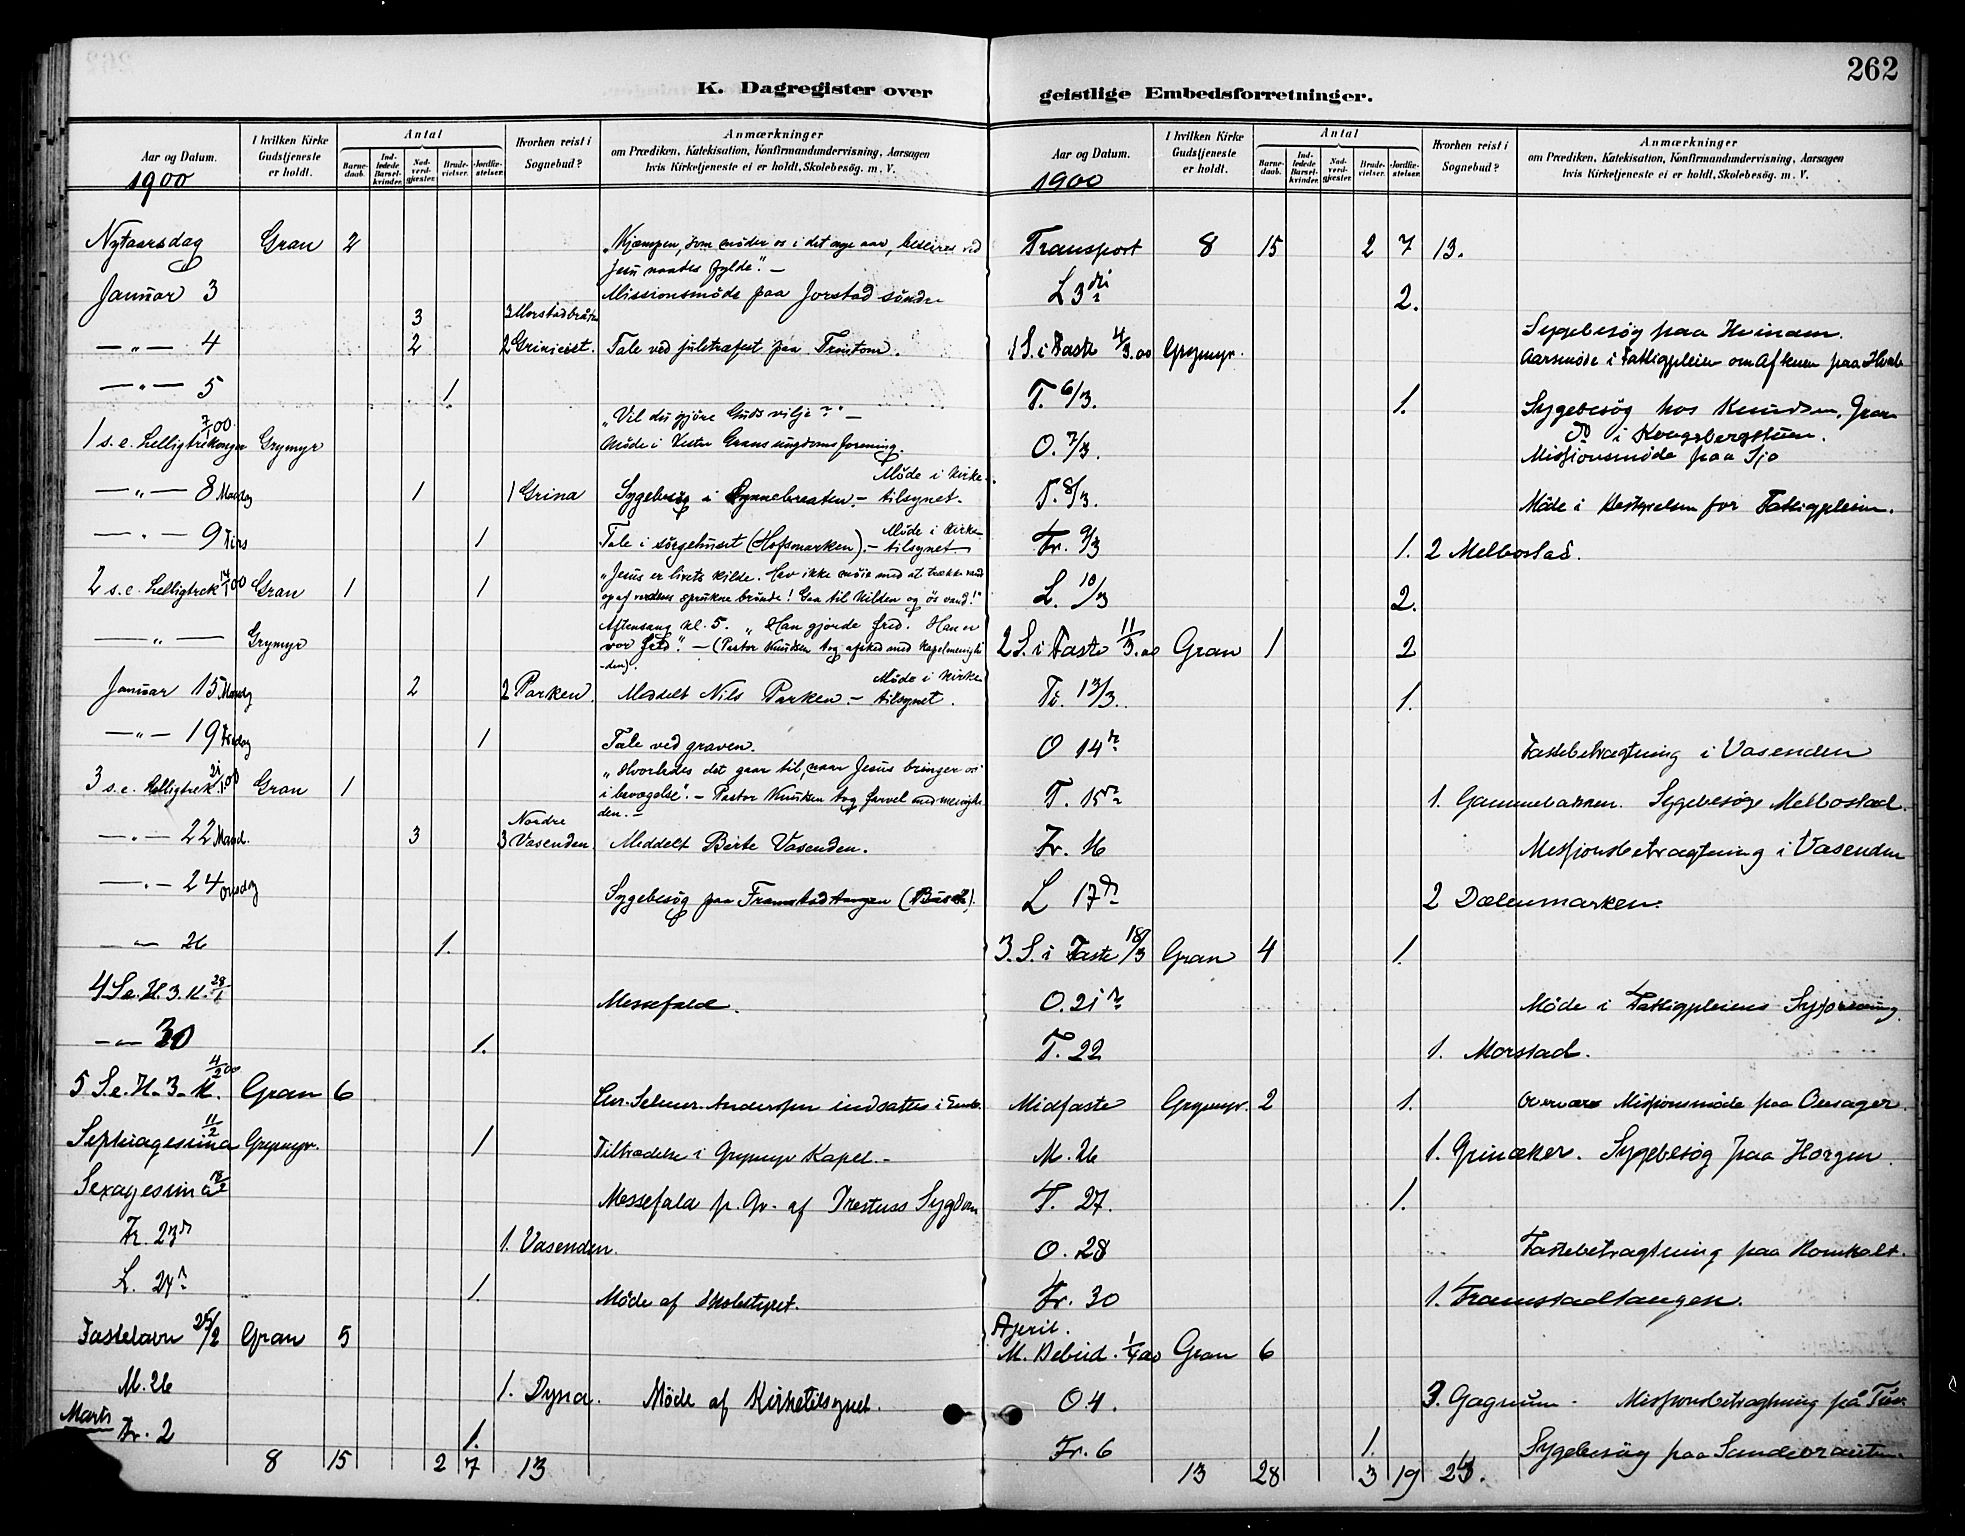 262
K. Dagregister over
geistlige Embedsforretninger.
Aar og Datum.
I hvilken Kirke Gudstjeneste er holdt.
Antal
Barnedaab.
Indledede Barselkvinder.
Nadverdgjester.
Brudevielser.
Jordfæstelser.
Hvorhen reist i Sognebud?
Anmærkninger
om Prædiken, Katekisation, Konfirmandundervisning, Aarsagen
hvis Kirketjeneste ei er holdt, Skolebesøg. m. V.
1900
Nytaarsdag Gran 2 "Kjæmpen, som møder os i det nye aar, beseires ved
Jesu naades fylde." —
Januar 3 3 3 Morstadbråten Missionsmøde paa Jorstad søndre
—"— 4 2 2 Tale ved juletræfest paa
—"— 5 1.
"Vil du gjøre Guds vilje?" —
1 s. e. Helligtrekonger 7/1 00 Grymyr Møde i Vestre Grans ungdomsforening.
—"— 8 Mandag 1 1 Grina Sygebesøg i — Møde i kirketilsynet.
—"— 9 Tirs 1 Tale i sørgehuset (Hofsmarken). — Møde i kirketilsynet
2 s. e. Helligtrek 14/1 00 Gran 1 1 "Jesus er livets kilde. Hav ikke møie med at trække vand
op af verdens sprukne brønde! Gaa til kilden og øs vand!"
—"— Grymyr Aftensang kl. 5. "Han gjorde fred. Han er
vor fred." — (Pastor Knudsen tog afsked med kapelmenigheden).
Januar 15 Mandag 2 2 Parken. Meddelt Nils Parken. — Møde i kirketilsynet.
—"— 19 Fredag 1 Tale ved graven.
3 s. e. Helligtrek. 21/1 00 Gran 1 "Hvorledes det gaar til, naar Jesus bringer os
i bevægelse". — Pastor Knudsen tog farvel med menigheden. —
—"— 22 Mand. 3 3 Nordre Vasenden Meddelt Berte Vasenden.
—"— 24 Onsdag Sygebesøg paa Framstadtangen
—"— 26 1.
4 S. e. H. 3. K. 28/1 Messefald.
—"— 30 1.
5 S. e. H. 3. K. 4/2 00 Gran 6 Andersen indsattes i Emb.
Septuagesima 11/2 Grymyr. 1 Tiltrædelse i Grymyr Kapel. —
Sexagesima Messefald p. Gr. af Prestens Sygdom
Fr. 23de 1. Vasenden.
L. 24de 1. Møde af Skolestyret.
Fastelavn 25/2 Gran 5
M. 26 1. Dyna. Møde af Kirketilsynet.
Marts
Fr. 2 1.
8 15 2 7 13
Aar og Datum.
I hvilken Kirke Gudstjeneste er holdt.
Antal
Barnedaab.
Indledede Barselkvinder.
Nadverdgjester.
Brudevielser.
Jordfæstelser.
Hvorhen reist i Sognebud?
Anmærkninger
om Prædiken, Katekisation, Konfirmandundervisning, Aarsagen
hvis Kirketjeneste ei er holdt, Skolebesøg. m. V.
1900
Transport 8 15 2 7 13.
L 3die 2.
Sygebesøg paa Hvinden.
1 S. i Faste 4/3.00 Grymyr. Aarsmøde i Fattigpleien om Aftenen paa
T. 6/3. 1. Sygebesøg hos Knudsen, Gran
Do i Kongsbergstuen.
O. 7/3. Missionsmøde paa Sjo
T. 8/3. Møde i Bestyrelsen for Fattigpleien.
Fr. 9/3 1. 2 Melbostad.
L. 10/3 2.
2 S. i Faste 11/3.00 Gran 1 2
Ti. 13/3. 1.
O 14de Fastebetragtning i Vasenden
T. 15de 1. Gammebakken. Sygebesøg Melbostad.
Fr. 16 Missionsbetragtning i Vasenden
L 17de 2 Dælenmarken.
3. S. i Faste 18/3 Gran 4 1.
O. 21de Møde i Fattigpleiens Syforening.
T. 22 1. Morstad.
Midfaste Grymyr. 2 1. Overvære Missionsmøde paa Onsager.
M. 26 1. Grinaker. Sygebesøg paa Horgen.
T. 27. 1.
O. 28 Fastebetragtning paa
Fr. 30 1. Framstadtangen.
April.
M. Bebud. 1/4 00 Gran 6
O 4. 3. Gagnum. Missionsbetragtning på
Fr. 6 1. Sygebesøg paa
13 28 3 19 23.